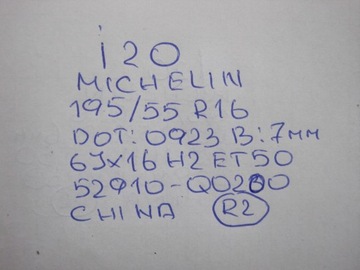 i20
MICHELIN
195/55 R16
DOT: 0923 B: 7мм
6Jx16 H2 ET50
52910-Q0200
CHINA R2